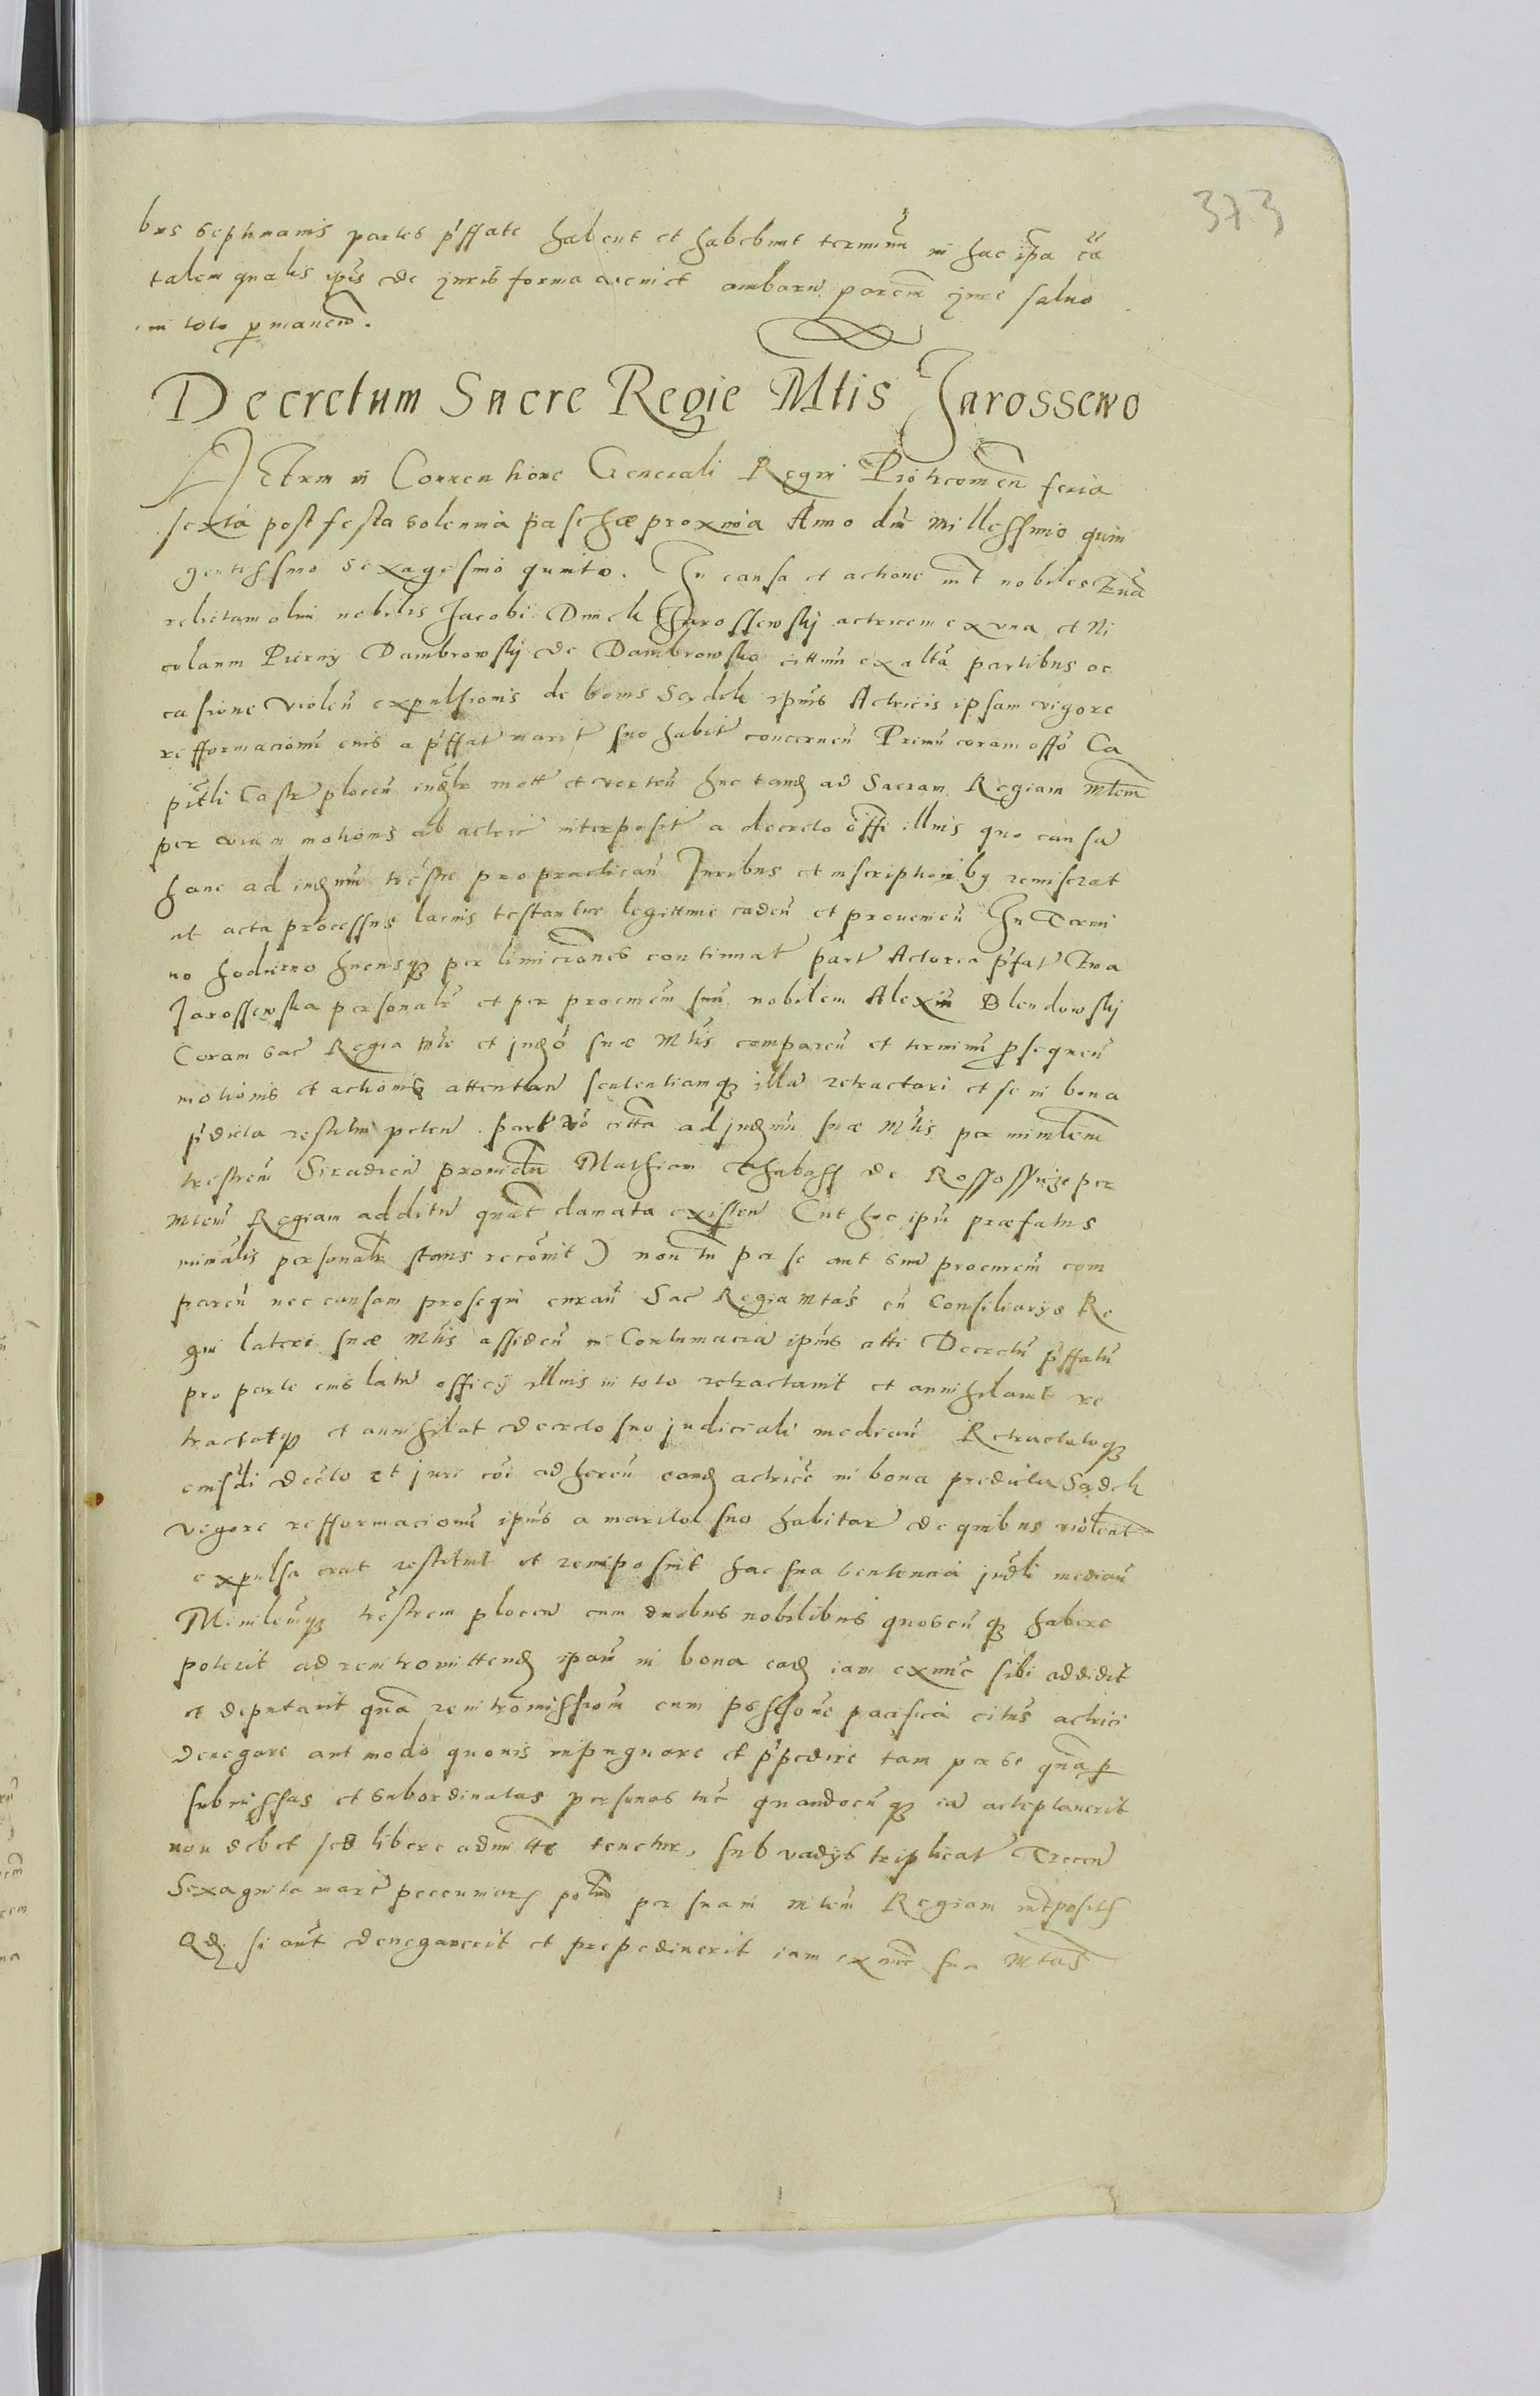 373
bus septimanis partes pffate habent et habebunt terminũ in hac ipa cã
talem qualis ipis de juris forma veniet ambarũ parcũ jure saluo
in toto pmaneñ.
Decretum Sacre Regie Mtis Jarossewo
ACtum in Conuentione Generali Regni Piotrcouieñ feria
sexta post festa solennia paschæ proxima Anno dñi Millessimo quin
gentessimo sexagesimo quinto. In causa et actione int nobiles Euã
relictam olim nobilis Jacobi Jarossewskij actricem ex vna et Ni
colaum Pierzny Dambrowskij de Dambrowsko cittum ex altã partibus oc
casione violeñ expulsionis de bonis Sądek ipius Actricis ipsam vigore
refformacionũ eius a pffat marit suo habit concerneñ Primũ coram offo Ca
pitli Castr ploceñ mott et verteñ huc tandẽ ad Sacram Regiam Mtem
per viam motionis ab actric interposit a decreto offi illius quo causã
hanc ad trestre pro practicañ Juribus et inscriptionibꝫ remiserat
ut acta processus lacius testantur legittime cadeñ et proueneñ In Termi
no hodierno hucusqꝫ per limitationes continuat part Actorea pfat Eua
Jarossewska personalr et per procurem suũ nobilem Alexiũ Blendowskij
Coram Sac Regia mte et judo suæ Mtis compareñ et terminũ psequeñ
motionis et actionis attentañ sententiamqꝫ illã retractari et se in bona
pdicta restitui peteñ. part vo citta ad judm suæ Mtis per
trestrem Siradieñ prouidũ Mathiam Chabass de Rossossicze per
Mtem Regiam additũ existeñ (ut hoc ipm præfatus
personalr stans recouit) non tñ per se aut suũ procurem com
pareñ nec causam prosequi curañ Sac Regia Mtas cũ Consiliarijs Re
gni lateri suæ Mtis assideñ in Contumacia ipius Decretũ pffatũ
pro parte eius latũ officij illius in toto retractauit et annihilauit re
tractatqꝫ et annihilat decreto suo judiciali mediañ Retractatoqꝫ
decto et juri coi adhereñ eandẽ actricẽ in bona predicta Sądek
vigore refformacionũ ipius a marito suo habitar de quibus violent
expulsa erat restituit et reimposuit hac sua sententia judli mediañ
trestrem ploceñ cum duobus nobilibus quoscũqꝫ habere
poterit ad reintromittendẽ ipam in bona eadẽ iam exnuc sibi addidit
et deputauit quã reintromissionẽ cum possessione pacifica citus actrici
denegare aut modo quouis inpugnare et ppedire tam per se quã p
submissas et subordinatas personas tuc quandocũqꝫ ea acteptauerit
non debet sed libere admitte tenetur, sub vadijs triplicat Treceñ
Sexaginta marc pecuniarũ per suam Mtem Regiam intpositis
Qd si aut denegauerit et prepediuerit iam exnuc sua Mtas